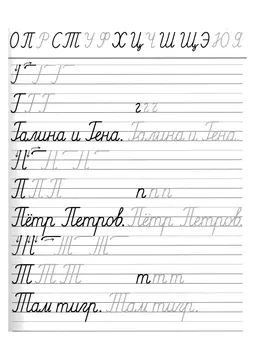 О П Р С Т У Ф Х Ц Ч Ш Щ Э Ю Я
Г Г Г г г г
Галина и Гена. Галина и Гена.
П П П п п п
Пётр Петров. Пётр Петров.
Т Т Т т т т
Там тигр. Там тигр.